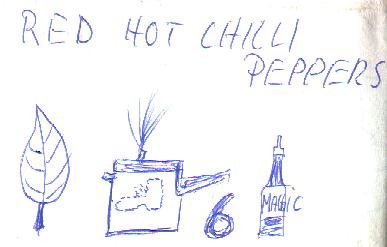 RED HOT CHILLI
PEPPERS
6
MAGIC